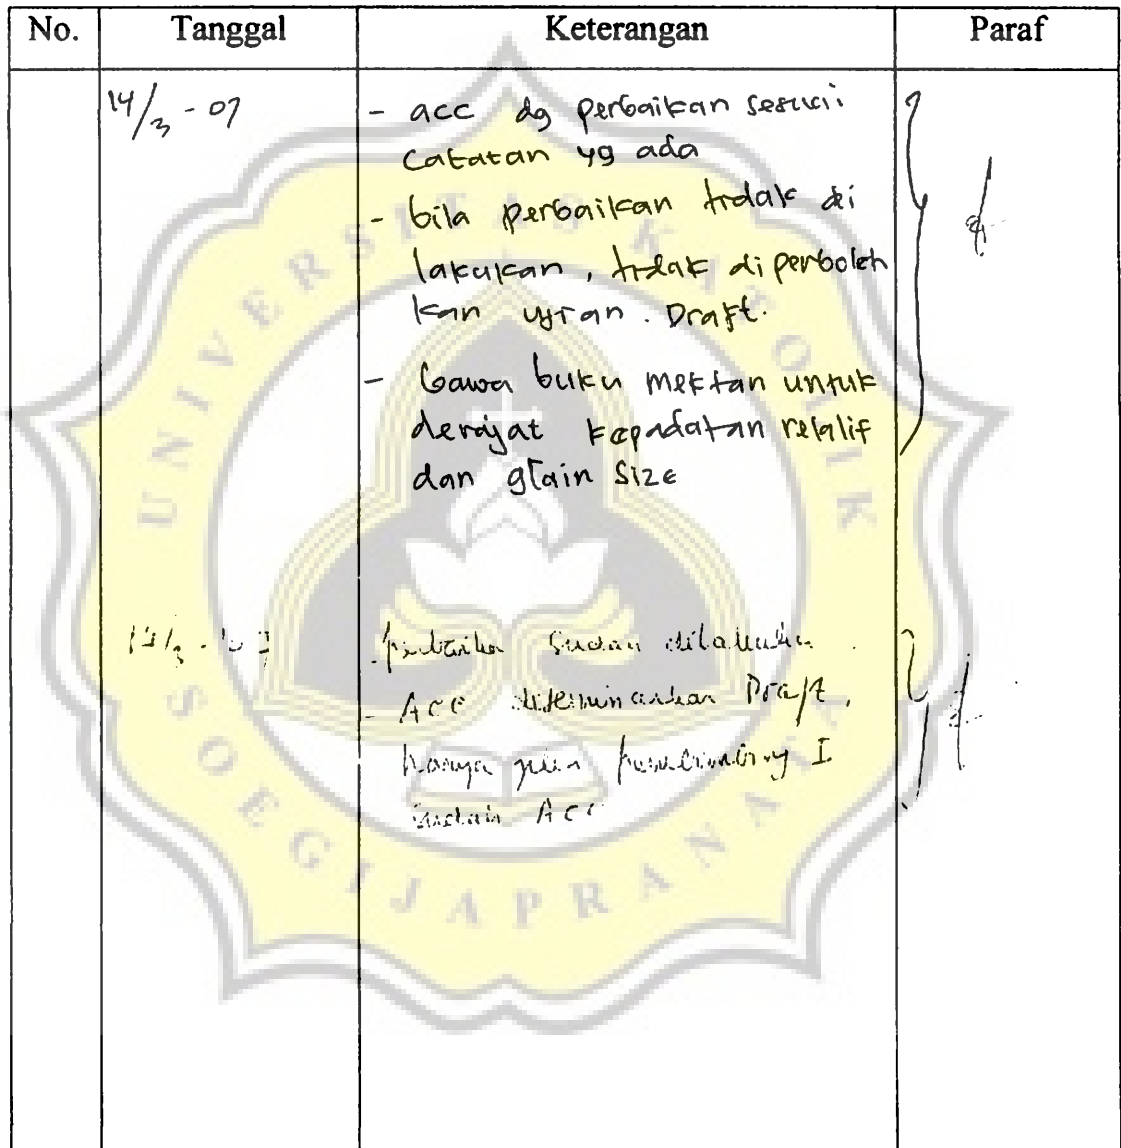 No. Tanggal Keterangan Paraf
14/3 - 07 - acc dg perbaikan sesuai
catatan yg ada
- bila perbaikan tidak di
lakukan, tidak diperboleh
kan ujian. Draft.
- bawa buku mektan untuk
derajat kepadatan relatif
dan grain size
- sudah dilakukan.
- Acc Draft,
I
sudah Acc
UNIVERSITAS KATOLIK
SOEGIJAPRANATA